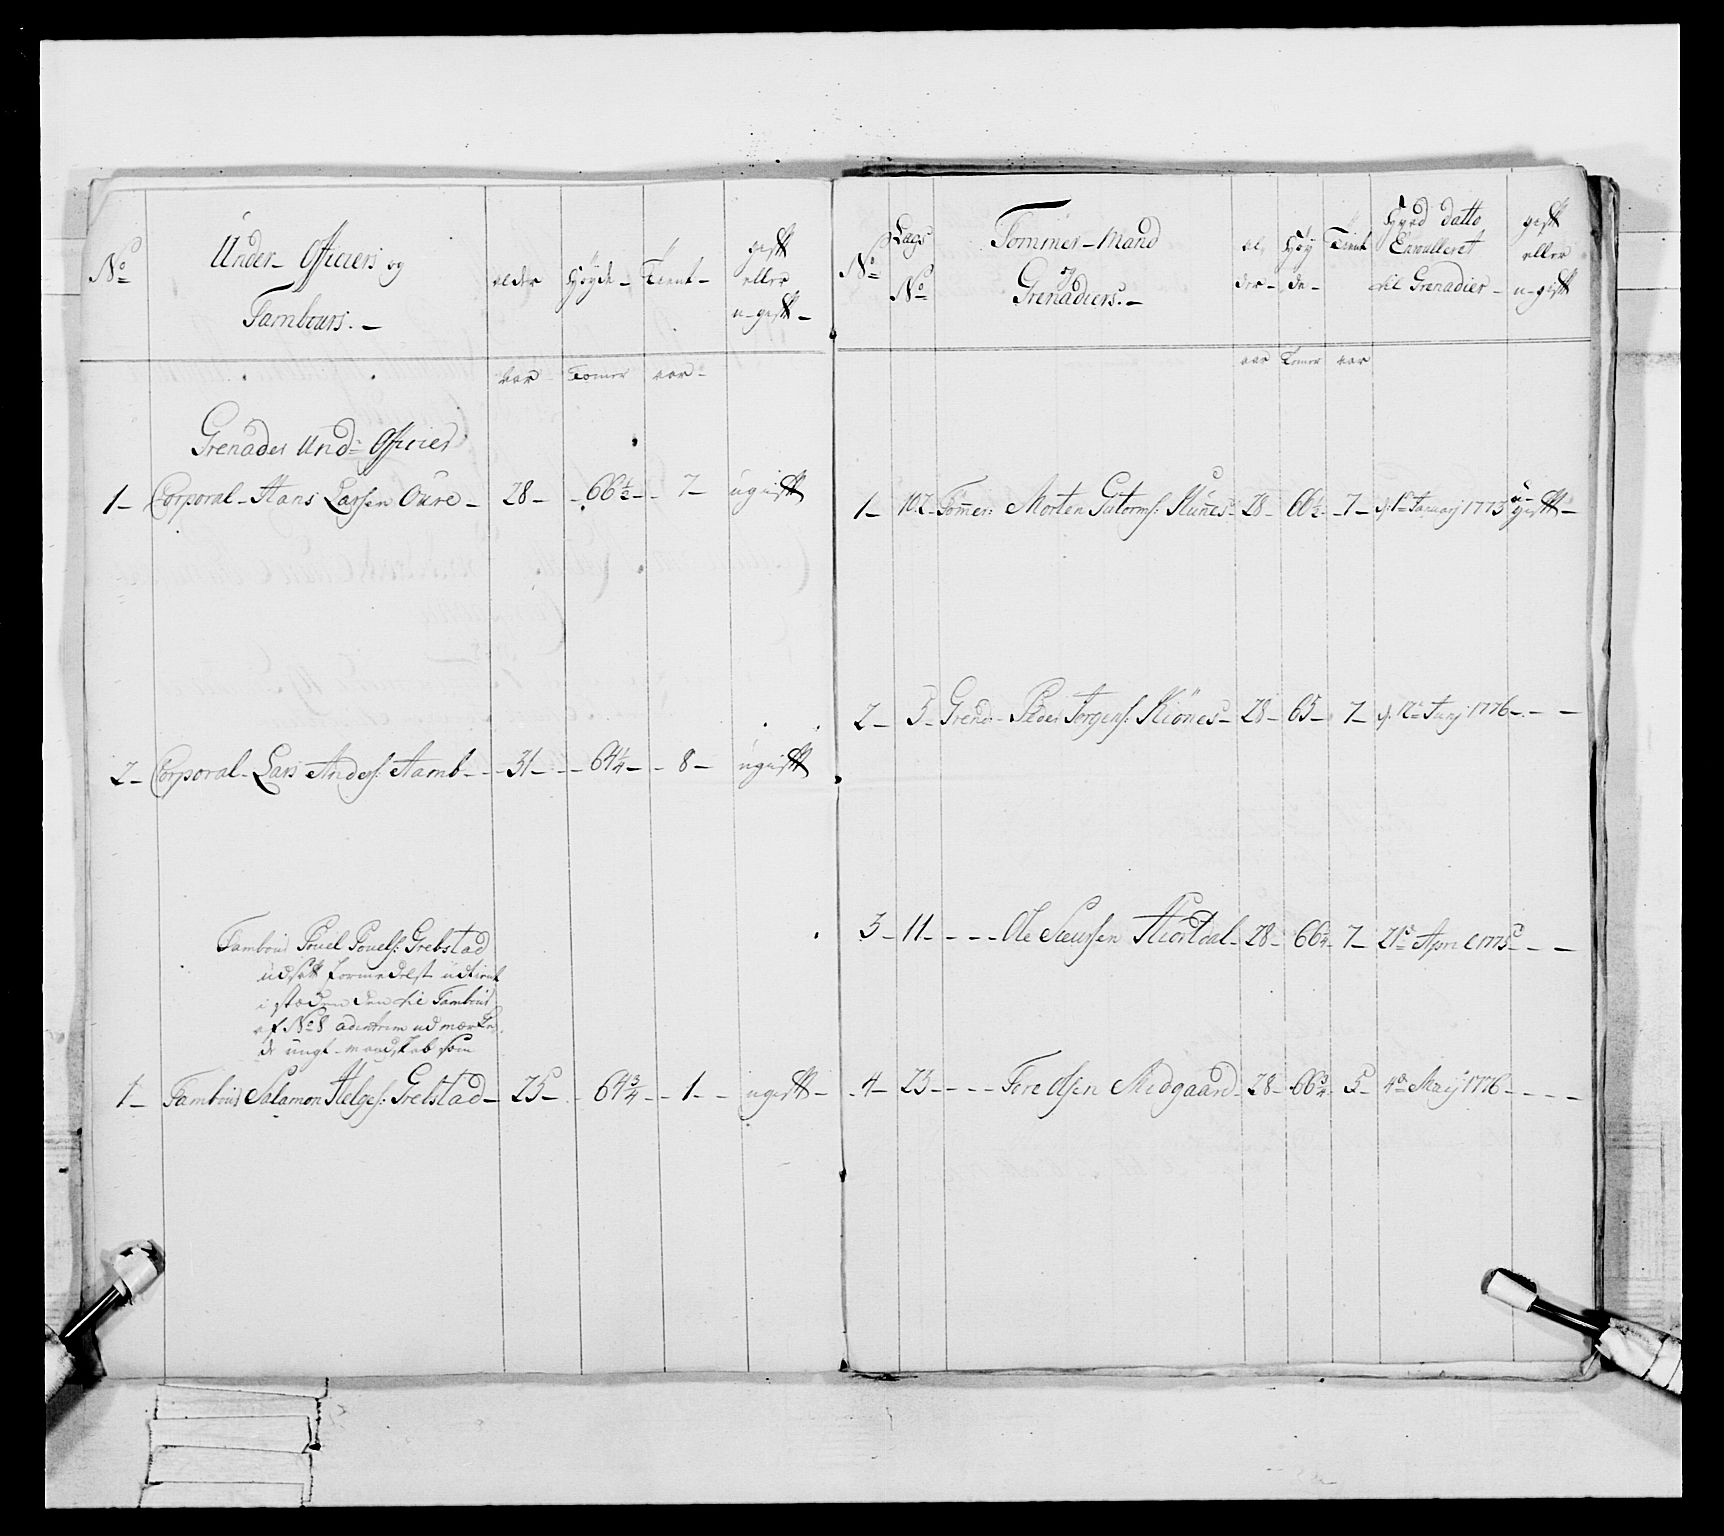 No
Under Officiers og
Tambours.
alder
Høyde
Tient
gift
eller
u-gift
aar
Tomer
aar
Grenader Und: Officier
1 Corporal Hans Larsen Oure 28 66 1/2 7 ugift
2 Corporal Lars Anders: Aamb 31 64 1/4 8 ugift
Tambour Povel Povels: Grebstad
udsatt formedelst udtient
i stæden den til Tambour
af No 8
de ungt mandskab som
1 Tambour Salamon Helges: Grebstad 25 64 3/4 1 ugift
No
Lags
No
Tømmer-Mand
og
Grenadiers.
al
der
Høy
de
Tient
Hvad datto
Enrulleret
til Grenadier
gift
eller
u-gift
aar
Tomer
aar
1 102 Tømer: Morten Gutorms: Slunes 28 66 1/2 7 d: 1 Januarj 1773 u-gift
2 5 Grend: Peder Jørgens: Kiønes 28 65 7 d: 12 Junj 1776
3 11 Ole Siursen Hiortdal 28 66 1/4 7 21 April 1775
4 23 Tore Olsen Midgaard 28 66 3/4 5 4 Maij 1776